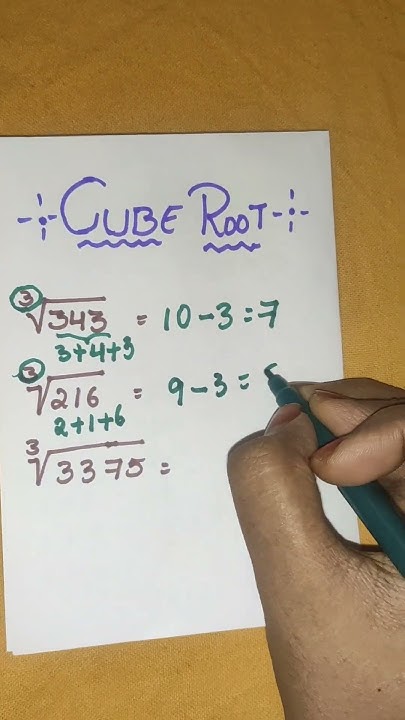 CUBE ROOT
∛343 = 10-3=7
3+4+3
∛216 = 9-3=
2+1+6
∛3375 =